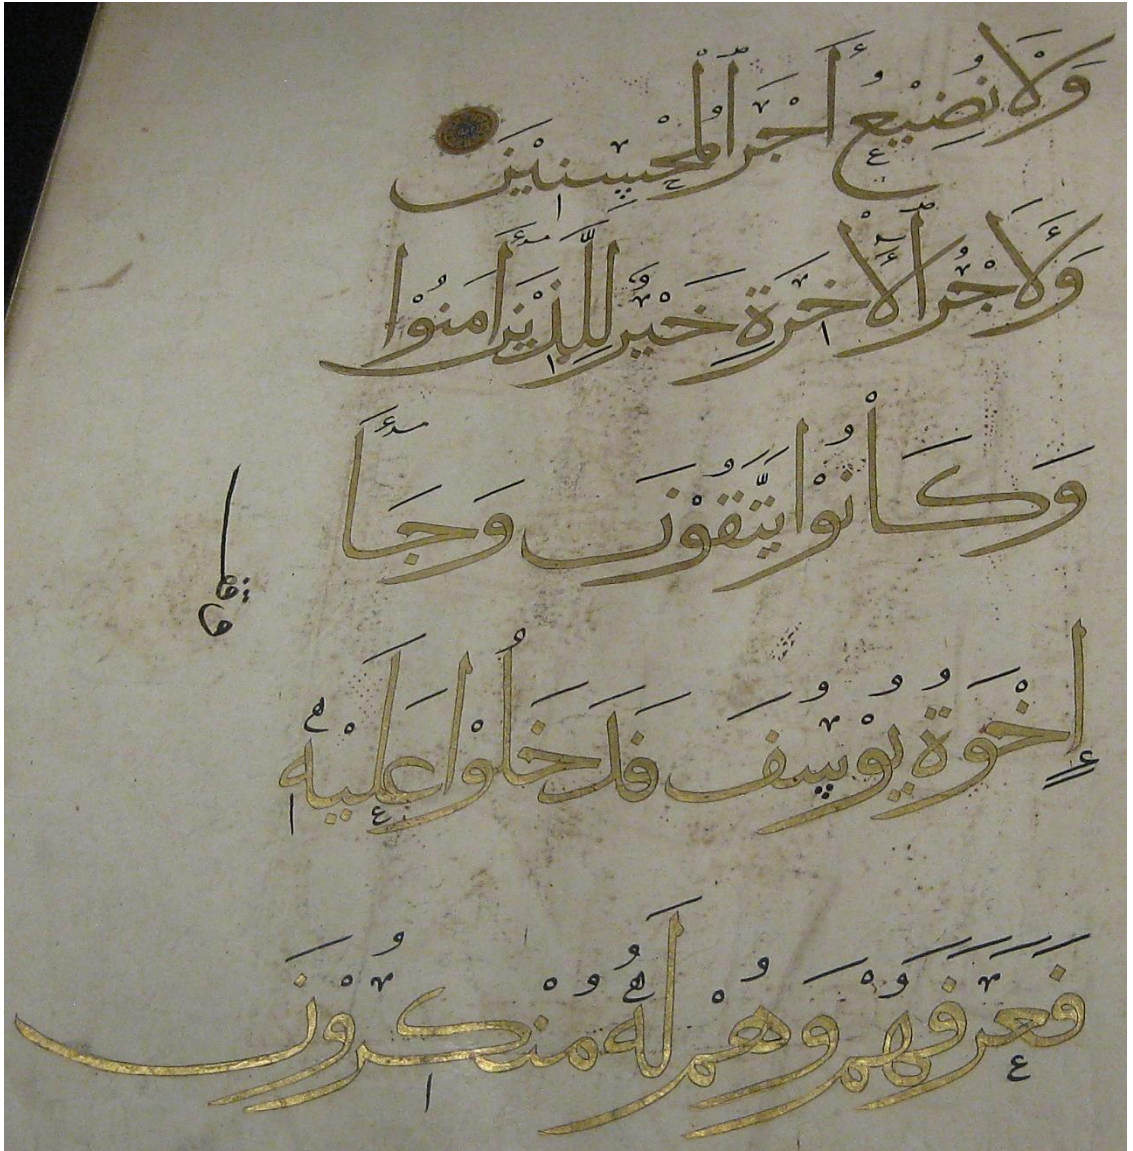 وَلَا نُضِيْعُ أَجْرَ الْمُحْسِنِيْنَ
وَلَأَجْرُ الْآخِرَةِ خَيْرٌ لِلَّذِيْنَ اٰمَنُوْا
وَكَانُوْا يَتَّقُوْنَ وَجَآ
إِخْوَةُ يُوْسُفَ فَدَخَلُوْا عَلَيْهِ
فَعَرَفَهُمْ وَهُمْ لَهُ مُنْكِرُوْنَ